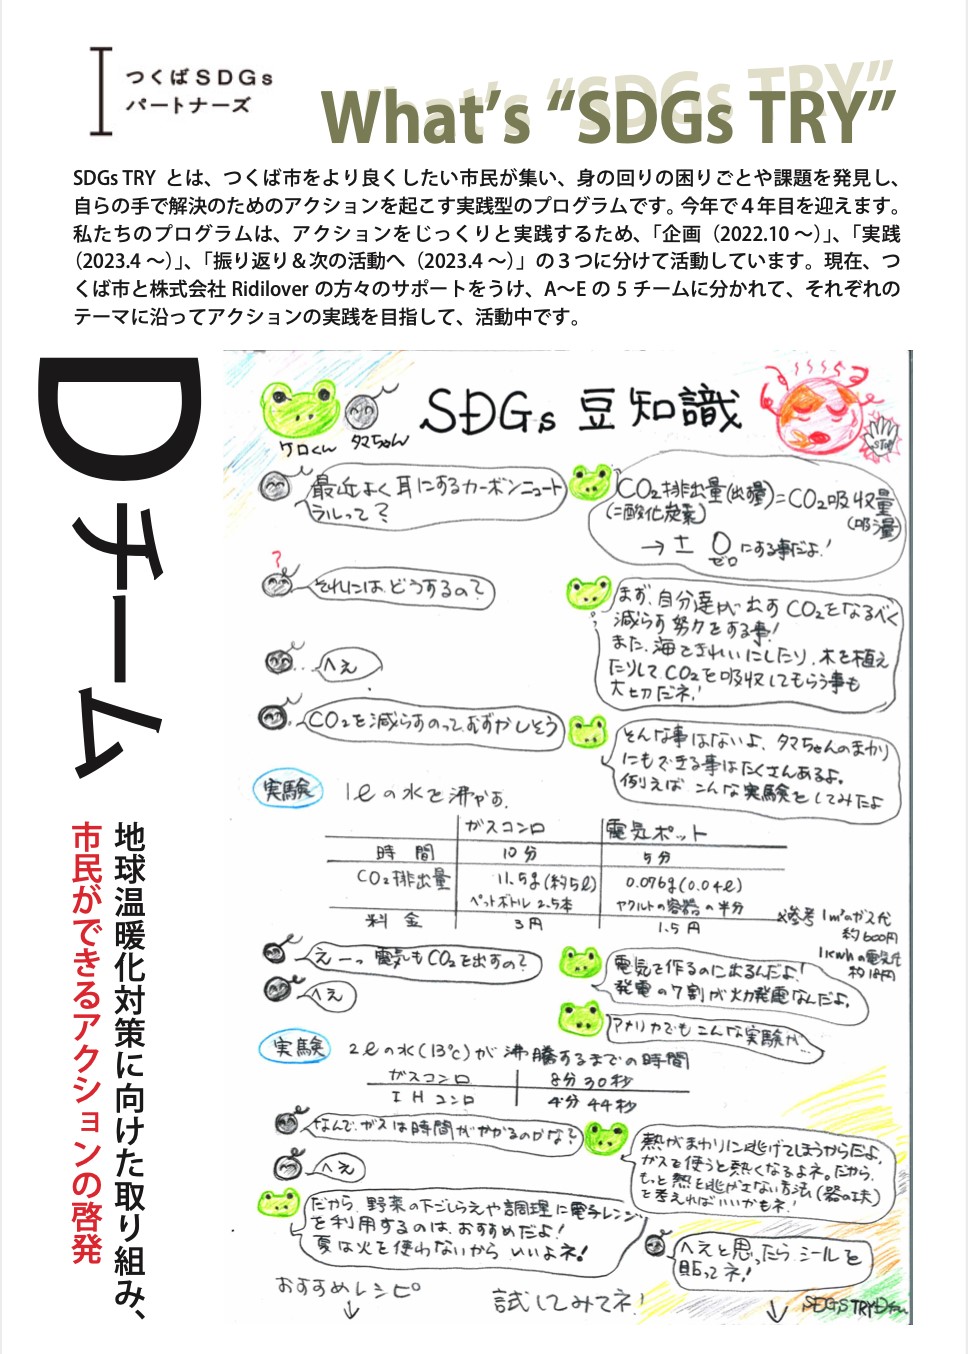 つくばSDGs
パートナーズ
What's “SDGs TRY”
SDGs TRY とは、つくば市をより良くしたい市民が集い、身の回りの困りごとや課題を発見し、
自らの手で解決のためのアクションを起こす実践型のプログラムです。今年で４年目を迎えます。
私たちのプログラムは、アクションをじっくりと実践するため、「企画（2022.10 〜）」、「実践
（2023.4 〜）」、「振り返り＆次の活動へ（2023.4 〜）」の３つに分けて活動しています。現在、つ
くば市と株式会社 Ridilover の方々のサポートをうけ、A〜E の 5 チームに分かれて、それぞれの
テーマに沿ってアクションの実践を目指して、活動中です。
Dチーム
地球温暖化対策に向けた取り組み、
市民ができるアクションの啓発
SDGs 豆知識
ケロくん
タマちゃん
STOP
最近よく耳にするカーボンニュート
ラルって？
CO2排出量(出る量)=CO2吸収量
(=二酸化炭素)
(吸う量)
→ ± 0にする事だよ!
ゼロ
?
それには、どうするの？
まず、自分達が出すCO2をなるべく
減らす努力をする事!
また、海をきれいにしたり、木を植え
たりしてCO2を吸収してもらう事も
大切だネ!
へぇ
CO2を減らすのって、むずかしそう
そんな事はないよ、タマちゃんのまわり
にもできる事はたくさんあるよ。
例えば、こんな実験をしてみたよ
実験
1ℓの水を沸かす。
ガスコンロ
電気ポット
時間
10分
5分
CO2排出量
11.5g(約5ℓ)
0.076g(0.04ℓ)
ペットボトル 2.5本
ヤクルトの容器の半分
料金
3円
1.5円
※参考 1m³のガス代
約600円
1Kwhの電気代
約18円
えーっ 電気もCO2を出すの？
電気を作るのに出るんだよ!
発電の7割が火力発電なんだよ。
へぇ
アメリカでもこんな実験が…
実験
2ℓの水(13℃)が沸騰するまでの時間
ガスコンロ
8分30秒
IHコンロ
4分44秒
なんで、ガスは時間がかかるのかな？
熱がまわりに逃げてしまうからだよ。
ガスを使うと熱くなるよネ。だから、
もっと熱を逃がさない方法(器の工夫)
を考えればいいかもネ!
へぇ
だから、野菜の下ごしらえや調理に電子レンジ
を利用するのは、おすすめだよ!
夏は火を使わないから いいよネ!
へぇと思ったら、シールを
貼ってネ!
おすすめレシピ
↓
試してみてネ!
↓
SDGS TRY Dチーム